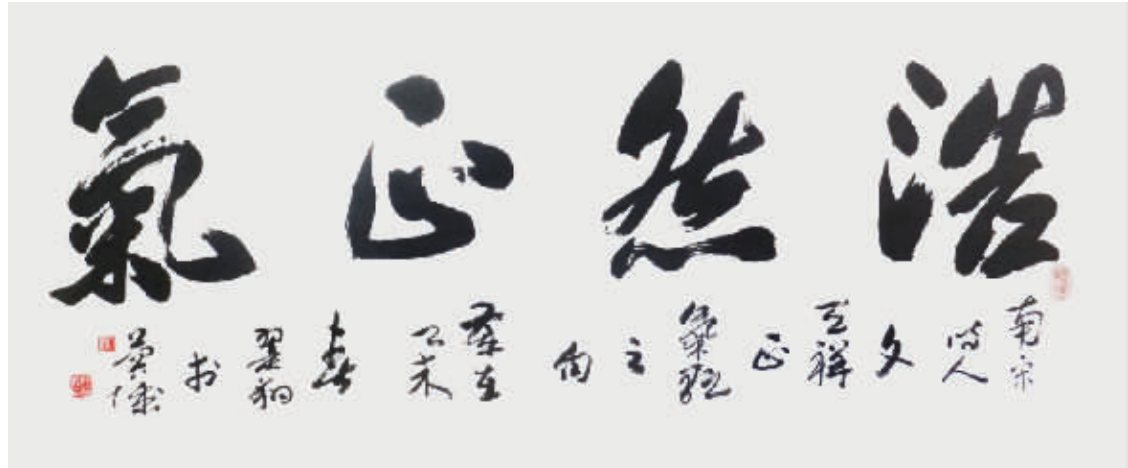 浩然正氣
南宋詩人文天祥正氣歌之句歲在乙未春书